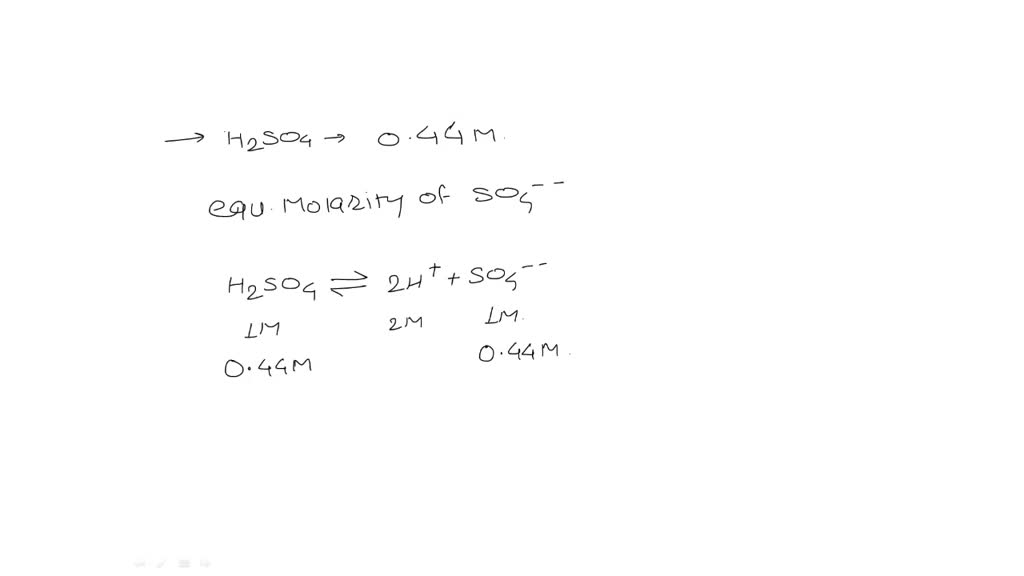 → H₂SO₄ → 0.44M.
equ. Molarity of SO₄⁻⁻
H₂SO₄ ⇌ 2H⁺ + SO₄⁻⁻
1M 2M 1M.
0.44M 0.44M.